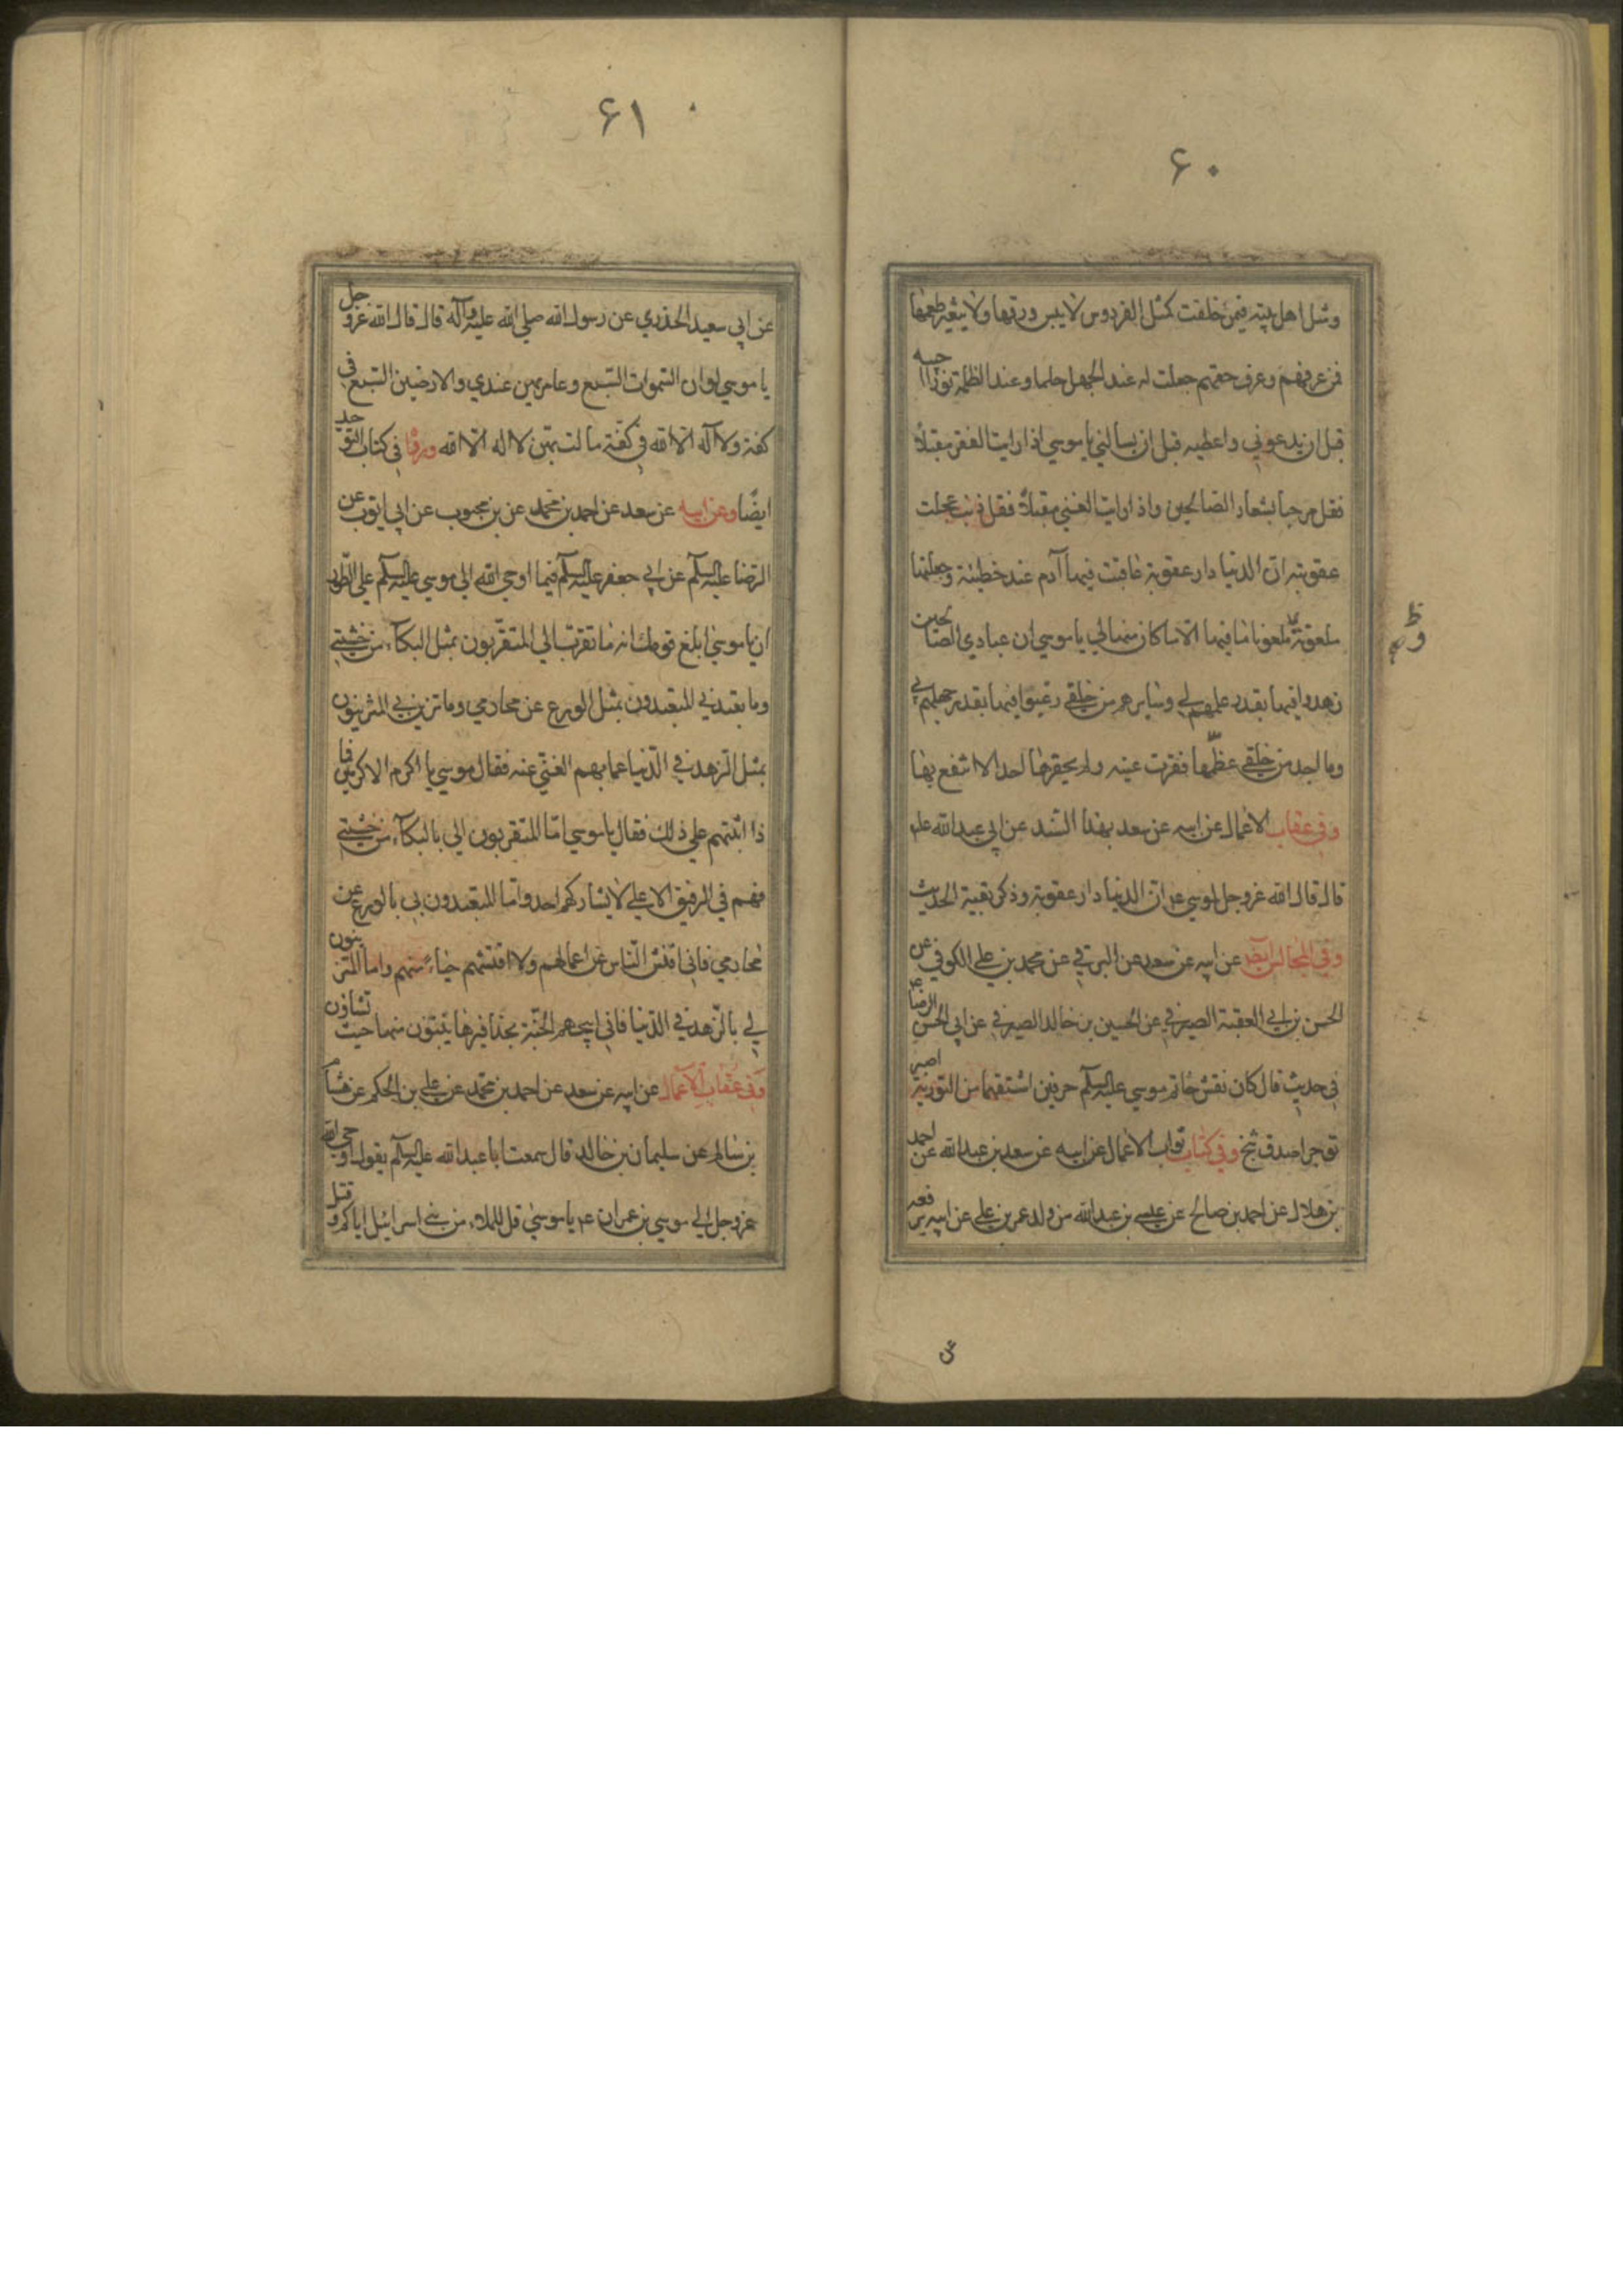 ۶۰
ومثل اهل بيته فيمن خلفت كمثل الفردوس لا ييبس ورقها ولا يتغير طعمها
فمن عرفهم وعرف حقهم جعلت له عند الجهل حلما وعند الظلمة نورا اجيبه
قبل ان يدعوني واعطيه قبل ان يسالني يا موسي اذا رايت الفقر مقبلاً
فقل مرحبا بشعار الصالحين واذا رايت الغني مقبلاً فقل ذنب عجلت
عقوبته ان الدنيا دار عقوبة عاقبت فيها آدم عند خطيئته وجعلتها
ملعونة ملعونا ما فيها الا ما كان منها لي يا موسي ان عبادي الصالحين
زهدوا فيها بقدر علمهم بي وسايرهم من خلقي رغبوا فيها بقدر جهلهم بي
وما احد من خلقي عظّمها فقرت عينه ولم يحقرها احد الا انتفع بها
وفي عقاب الاعمال عن ابيه عن سعد بهذا السند عن ابي عبد الله عليه
قال قال الله عزوجل لموسي ع ان الدنيا دار عقوبة وذكر بقية الحديث
وفي المجالس ايضا عن ابيه عن سعد عن البرقي عن محمد بن علي الكوفي عن
الحسن بن ابي العقبة الصيرفي عن الحسين بن خالد الصيرفي عن ابي الحسن الرضا ع
في حديث قال كان نقش خاتم موسي عليه السلم حرفين اشتقهما من التورية اصبر
توجر اصدق تنج وفي كتاب ثواب الاعمال عن ابيه عن سعد بن عبد الله عن احمد
بن هلال عن احمد بن صالح عن عيسي بن عبد الله من ولد عمر بن علي عن ابيه يرفعه
عن
۶۱
عن ابي سعيد الخدري عن رسول الله صلي الله عليه وآله قال قال الله عزوجل
يا موسي لو ان السموات السبع وعامريهن عندي والارضين السبع في
كفة ولا آله الا الله في كفّة مالت بهنّ لا اله الا الله ورواه في كتاب التوحيد
ايضًا وعن ابيه عن سعد عن احمد بن محمد عن بن محبوب عن ابي ايوب عن
الرضا عليه السلم عن ابي جعفر عليه السلم فيما اوحي الله الي موسي عليه السلم علي الطور
ان يا موسي ابلغ قومك انه ما تقرب الي المتقربون بمثل البكآء من خشيتي
وما تعبد لي المتعبدون بمثل الورع عن محارمي وما تزين لي المتزينون
بمثل الزهد في الدّنيا عما بهم الغني عنه فقال موسي يا اكرم الاكرمين فما
ذا اثبتهم علي ذلك فقال يا موسي امّا المتقربون الي بالبكآء من خشيتي
فهم في الرفيق الاعلي لا يشاركهم احد وامّا المتعبدون لي بالورع عن
محارمي فاني افتش الناس عن اعمالهم ولا افتشهم حياءً منهم واما المتزينون
لي بالزّهد في الدّنيا فاني ابيحهم الجنّة بحذافيرها يتبوّؤن منها حيث يشاؤن
وفي عقاب الاعمال عن ابيه عن سعد عن احمد بن محمد عن علي بن الحكم عن هشام
بن سالم عن سليمان بن خالد قال سمعت ابا عبد الله عليه السلم يقول اوحي الله
عزوجل الي موسي بن عمران ع يا موسي قل للملاء من بني اسرائيل اياكم وقتل